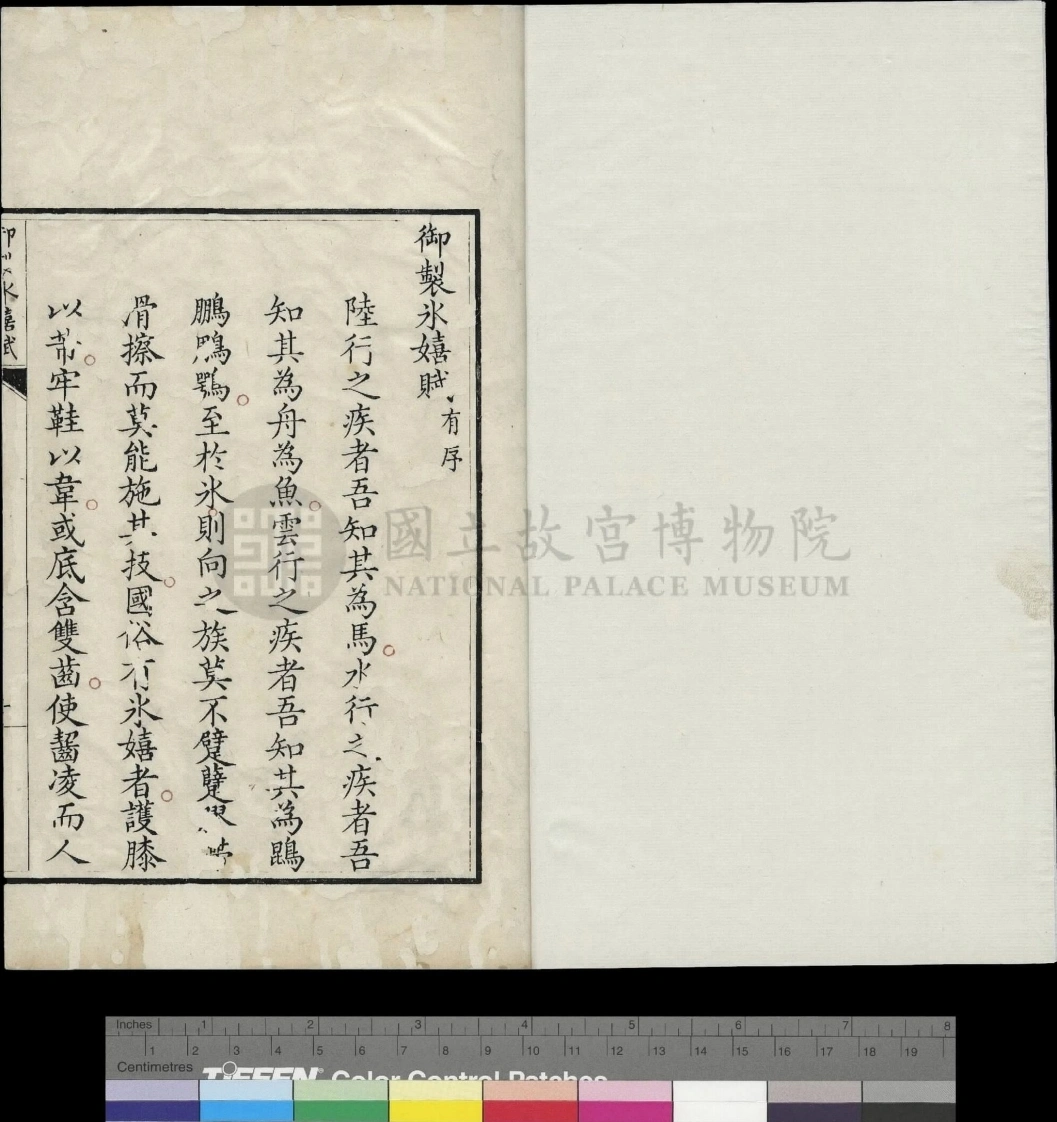 御製冰嬉賦有序
陸行之疾者吾知其為馬水行之疾者吾
知其為舟為魚雲行之疾者吾知其為鵾
鵬鵰鶚至於冰則向之族莫不躄躠
滑擦而莫能施其技國俗有冰嬉者護膝
以芾牢鞋以韋或底含雙齒使齧凌而人
冰嬉賦
國立故宮博物院
NATIONAL PALACE MUSEUM
Inches 1 2 3 4 5 6 7 8
1 2 3 4 5 6 7 8 9 10 11 12 13 14 15 16 17 18 19
Centimetres
TIFFEN Color Control Patches